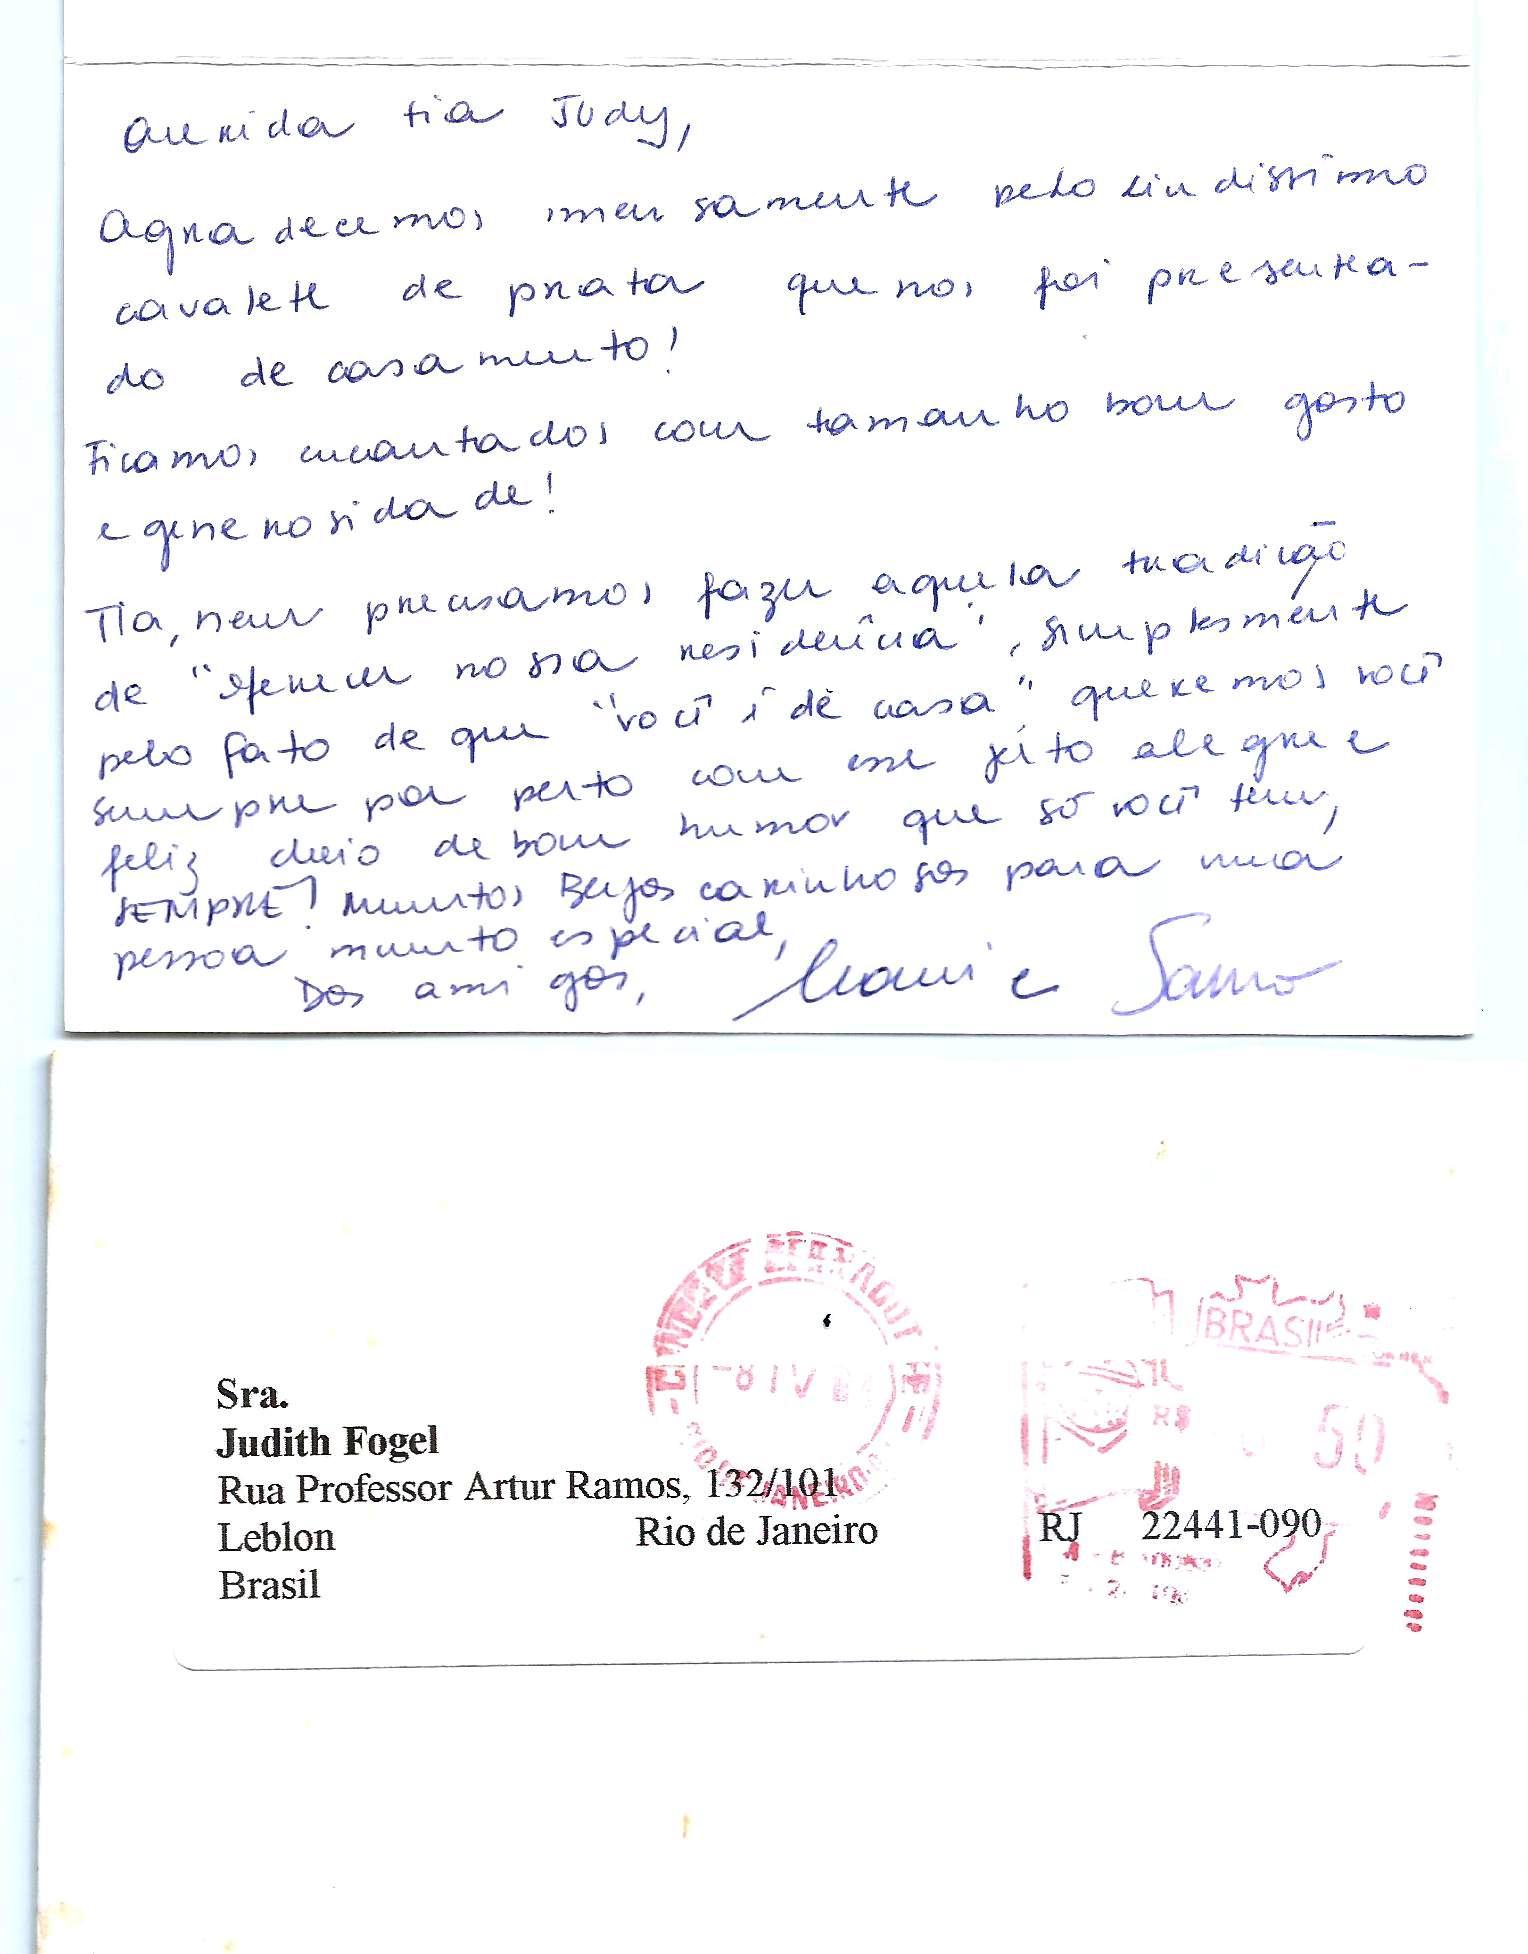 Querida tia Judy,
Agradecemos imensamente pelo lindíssimo
cavalete de prata que nos foi presentea-
do de casamento!
Ficamos encantados com tamanho bom gosto
e generosidade!
Tia, nem precisamos fazer aquela tradição
de "oferecer nossa residência", simplesmente
pelo fato de que "você é de casa" queremos você
sempre por perto com esse jeito alegre e
feliz cheio de bom humor que só você tem,
SEMPRE! Muitos Beijos carinhosos para uma
pessoa muito especial,
Dos amigos, e
BRASIL
8 IV
R$ 50
Sra.
Judith Fogel
Rua Professor Artur Ramos, 132/101
JANEIRO
Leblon Rio de Janeiro RJ 22441-090
Brasil